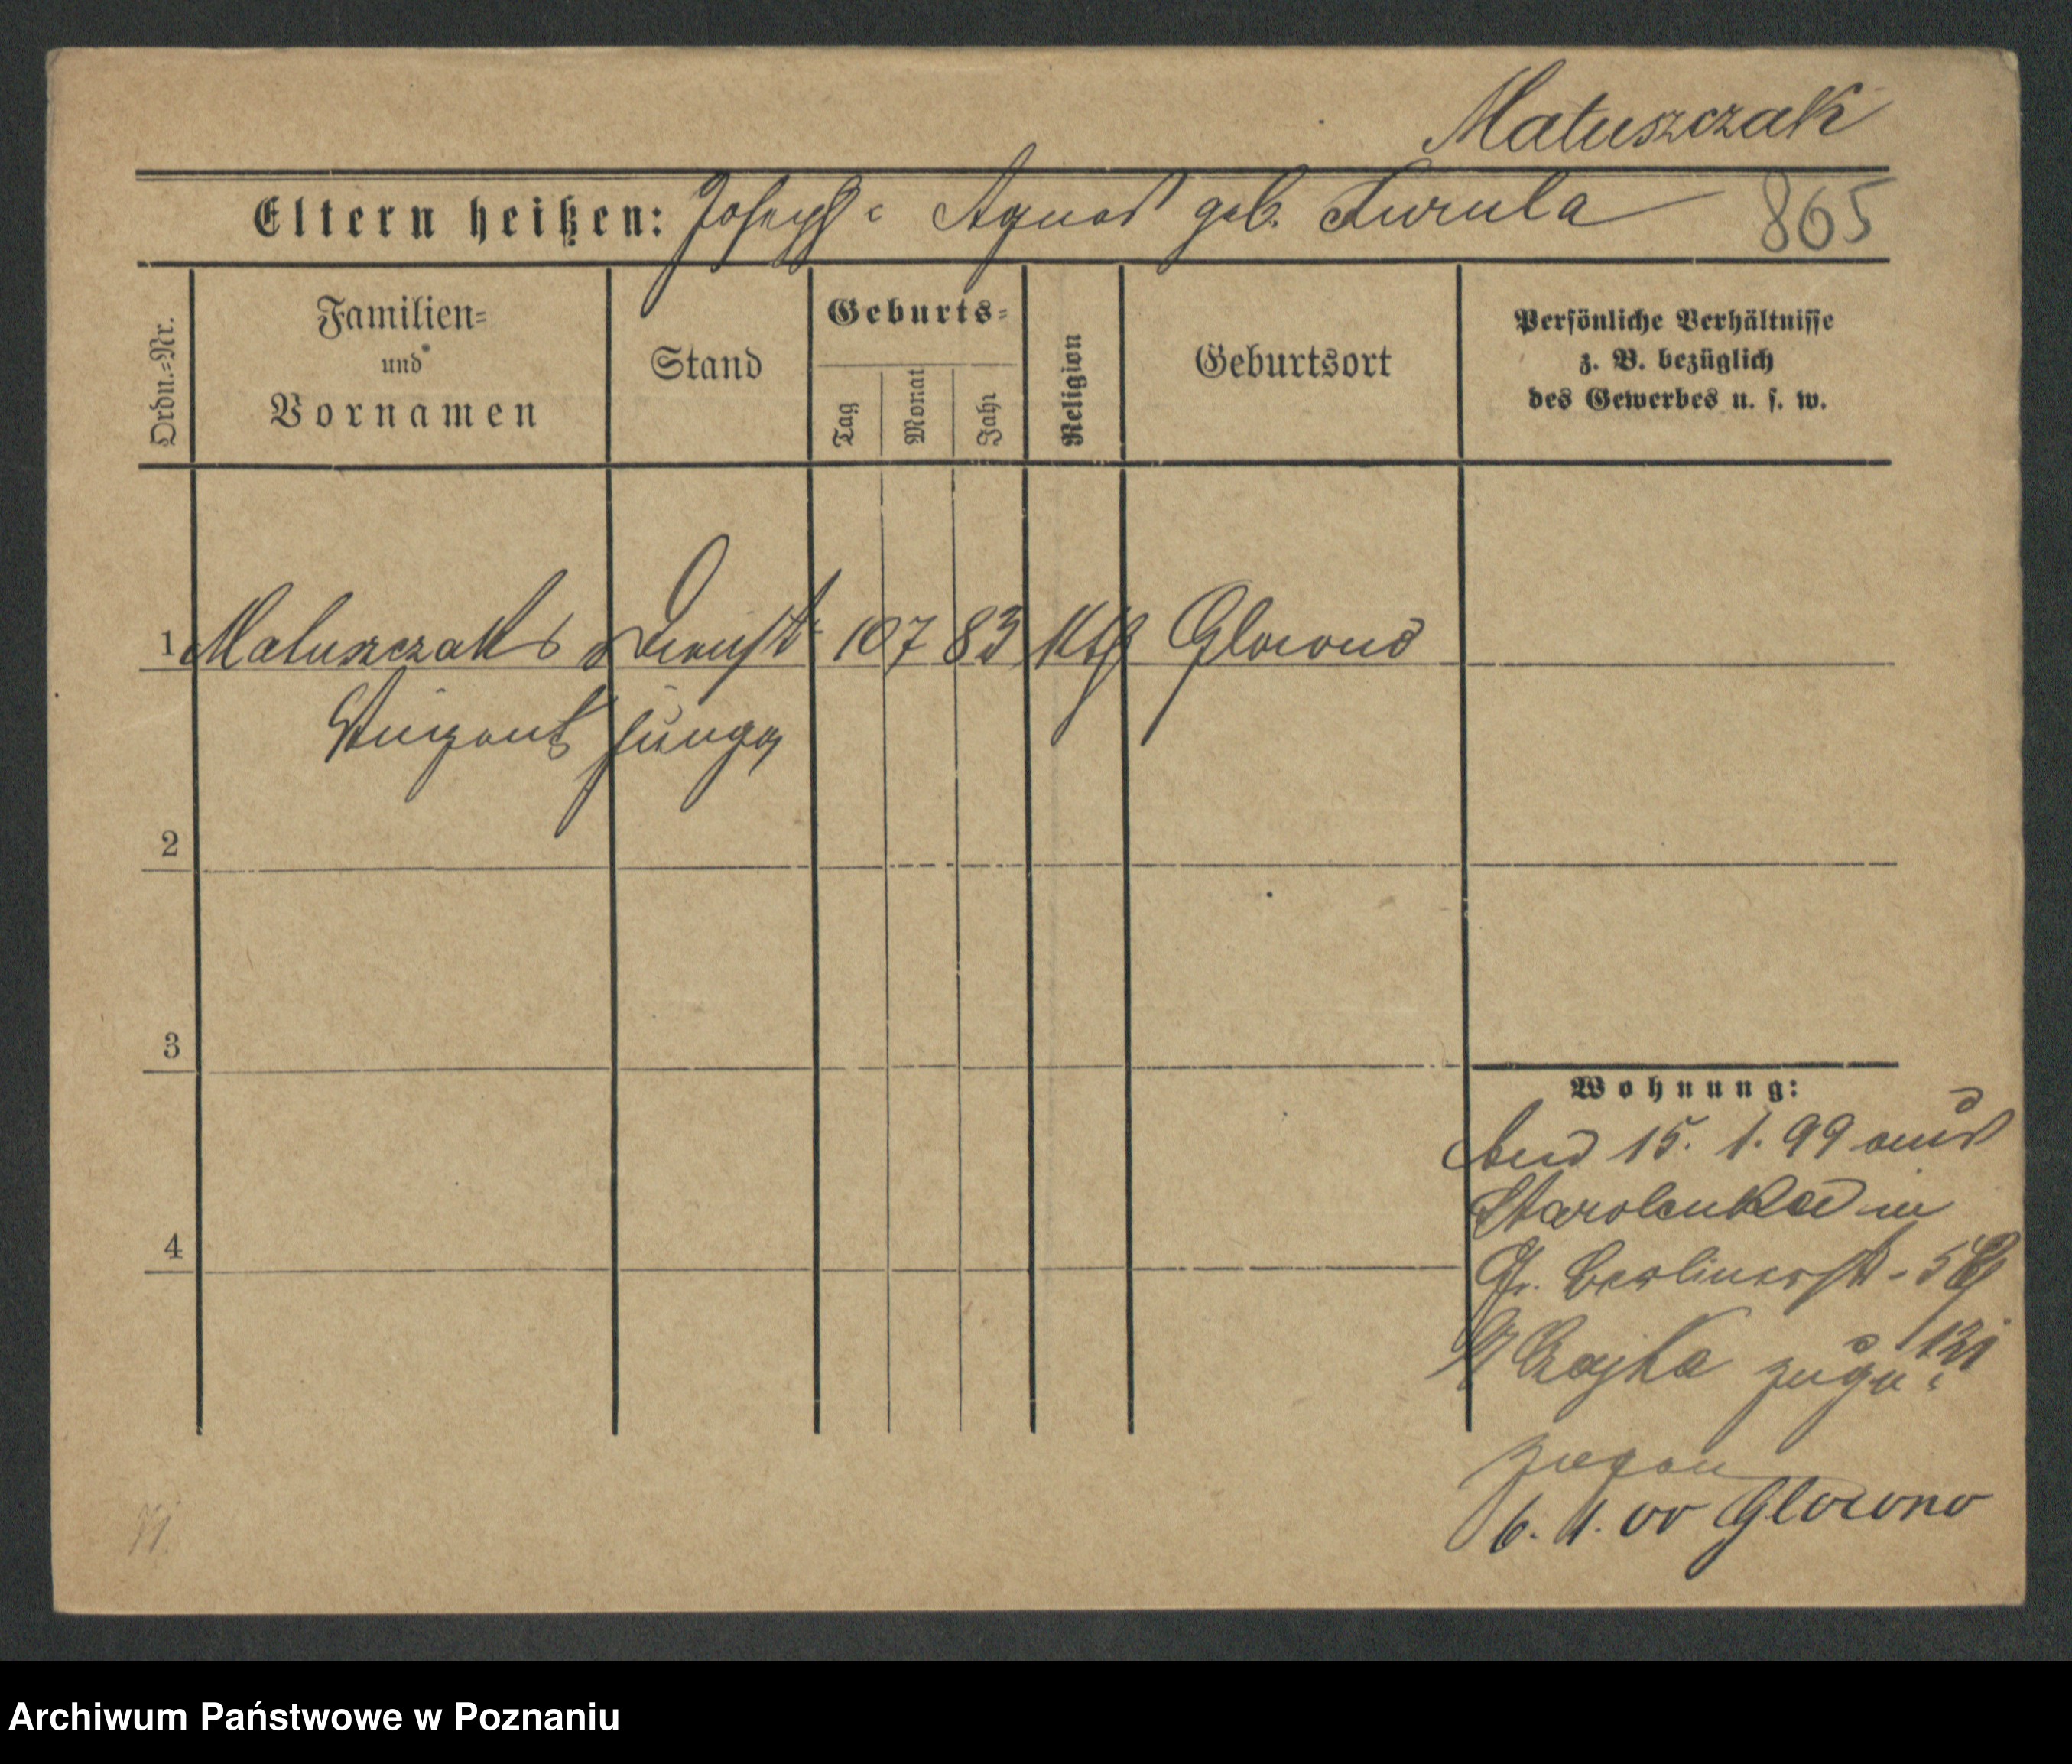 Matuszczak
Eltern heißen: Joseph u. Agnes geb. Furula
865
Ordn.-Nr.
Familien-
und
Vornamen
Stand
Geburts-
Tag
Monat
Jahr
Religion
Geburtsort
Persönliche Verhältnisse
z. B. bezüglich
des Gewerbes u. s. w.
1 Matuszczak Dienst- 10 7 83 kth Glowno
Vinzent junge
2
3
4
Wohnung:
15. 1. 99 aus
Starolenka in
Gr. Berlinerstr. 58
Czajka zuge-
zogen
6. 1. 00 Glowno
Archiwum Państwowe w Poznaniu